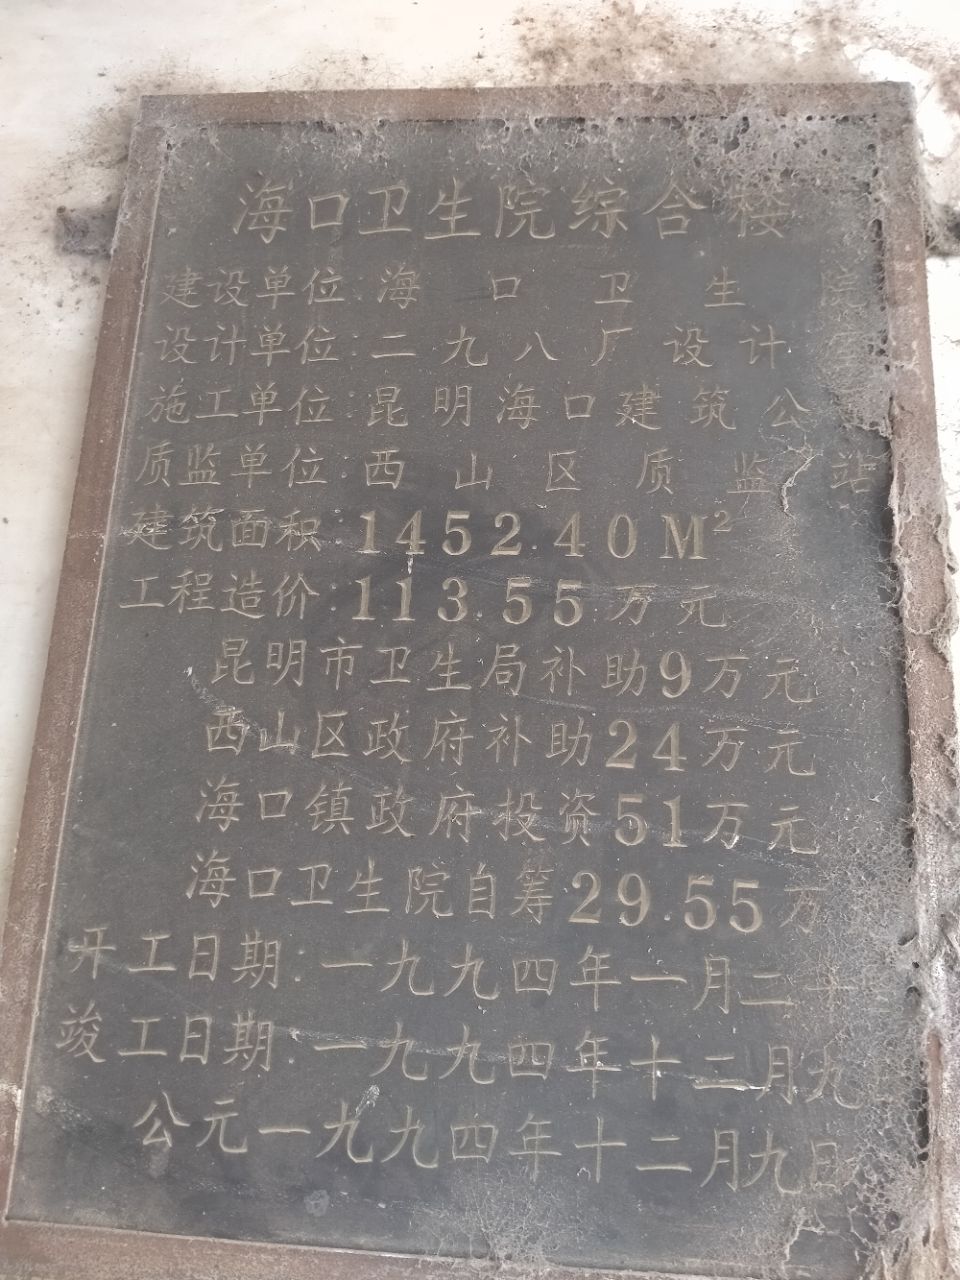 海口卫生院综合楼
建设单位:海口卫生院
设计单位:二九八厂设计
施工单位:昆明海口建筑公
质监单位:西山区质监站
建筑面积:1452.40M²
工程造价:113.55万元
昆明市卫生局补助9万元
西山区政府补助24万元
海口镇政府投资51万元
海口卫生院自筹29.55万
开工日期:一九九四年一月二十
竣工日期:一九九四年十二月九
公元一九九四年十二月九日